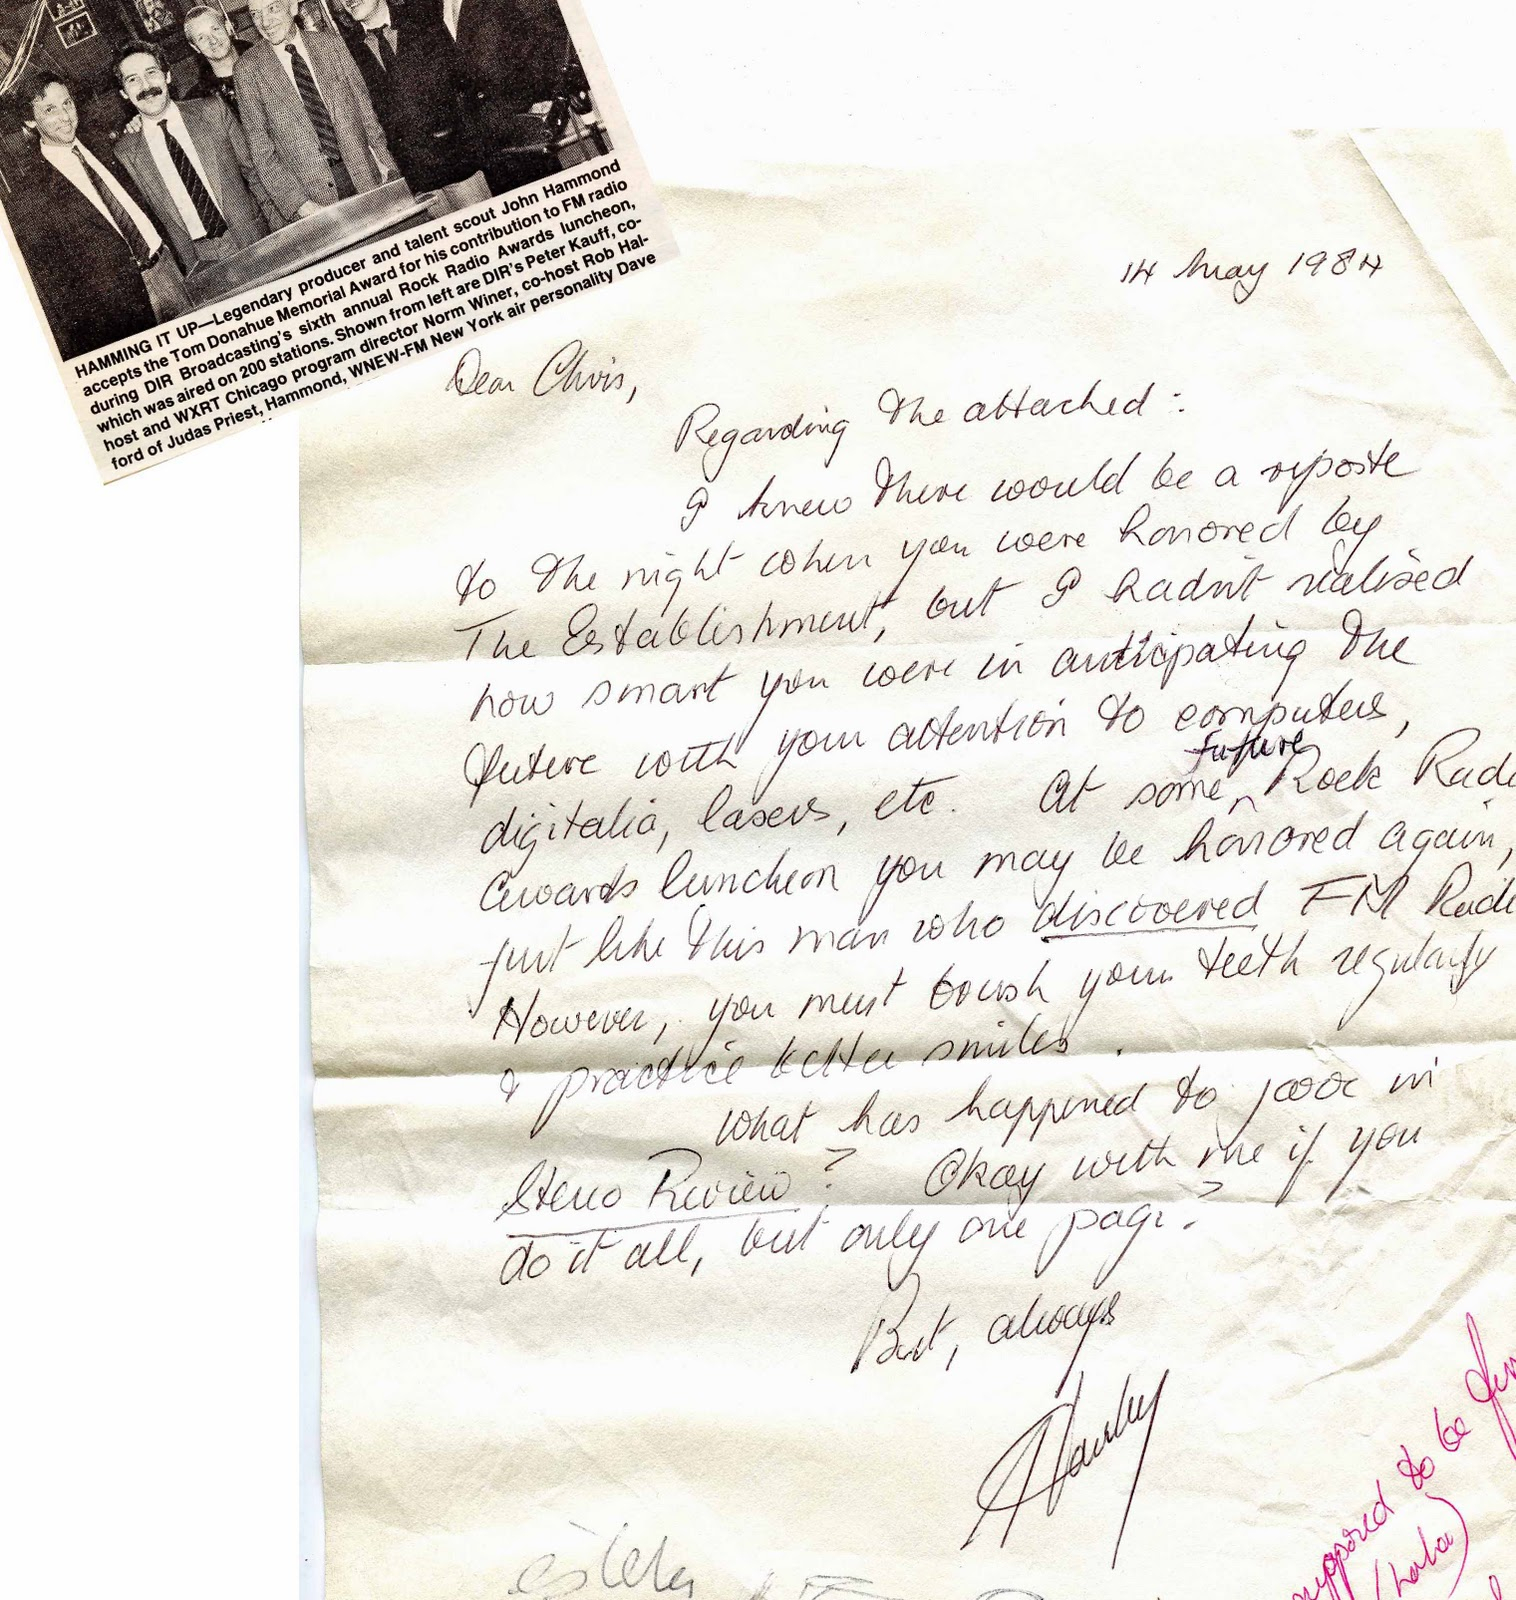 HAMMING IT UP—Legendary producer and talent scout John Hammond
accepts the Tom Donahue Memorial Award for his contribution to FM radio
during DIR Broadcasting's sixth annual Rock Radio Awards luncheon,
which was aired on 200 stations. Shown from left are DIR's Peter Kauff, co-
host and WXRT Chicago program director Norm Winer, co-host Rob Hal-
ford of Judas Priest, Hammond, WNEW-FM New York air personality Dave
14 May 1984
Dear Chris,
Regarding the attached:
I knew there would be a riposte
to the night when you were honored by
The Establishment, but I hadn't realised
how smart you were in anticipating the
future with your attention to computers,
digitalia, lasers, etc. At some future Rock Radi
Awards luncheon you may be honored again,
just like this man who discovered FM Radi
However, you must brush your teeth regularly
& practice better smiles.
What has happened to in
Stereo Review? Okay with me if you
do it all, but only one page?
But, always
supposed to be
(haha)